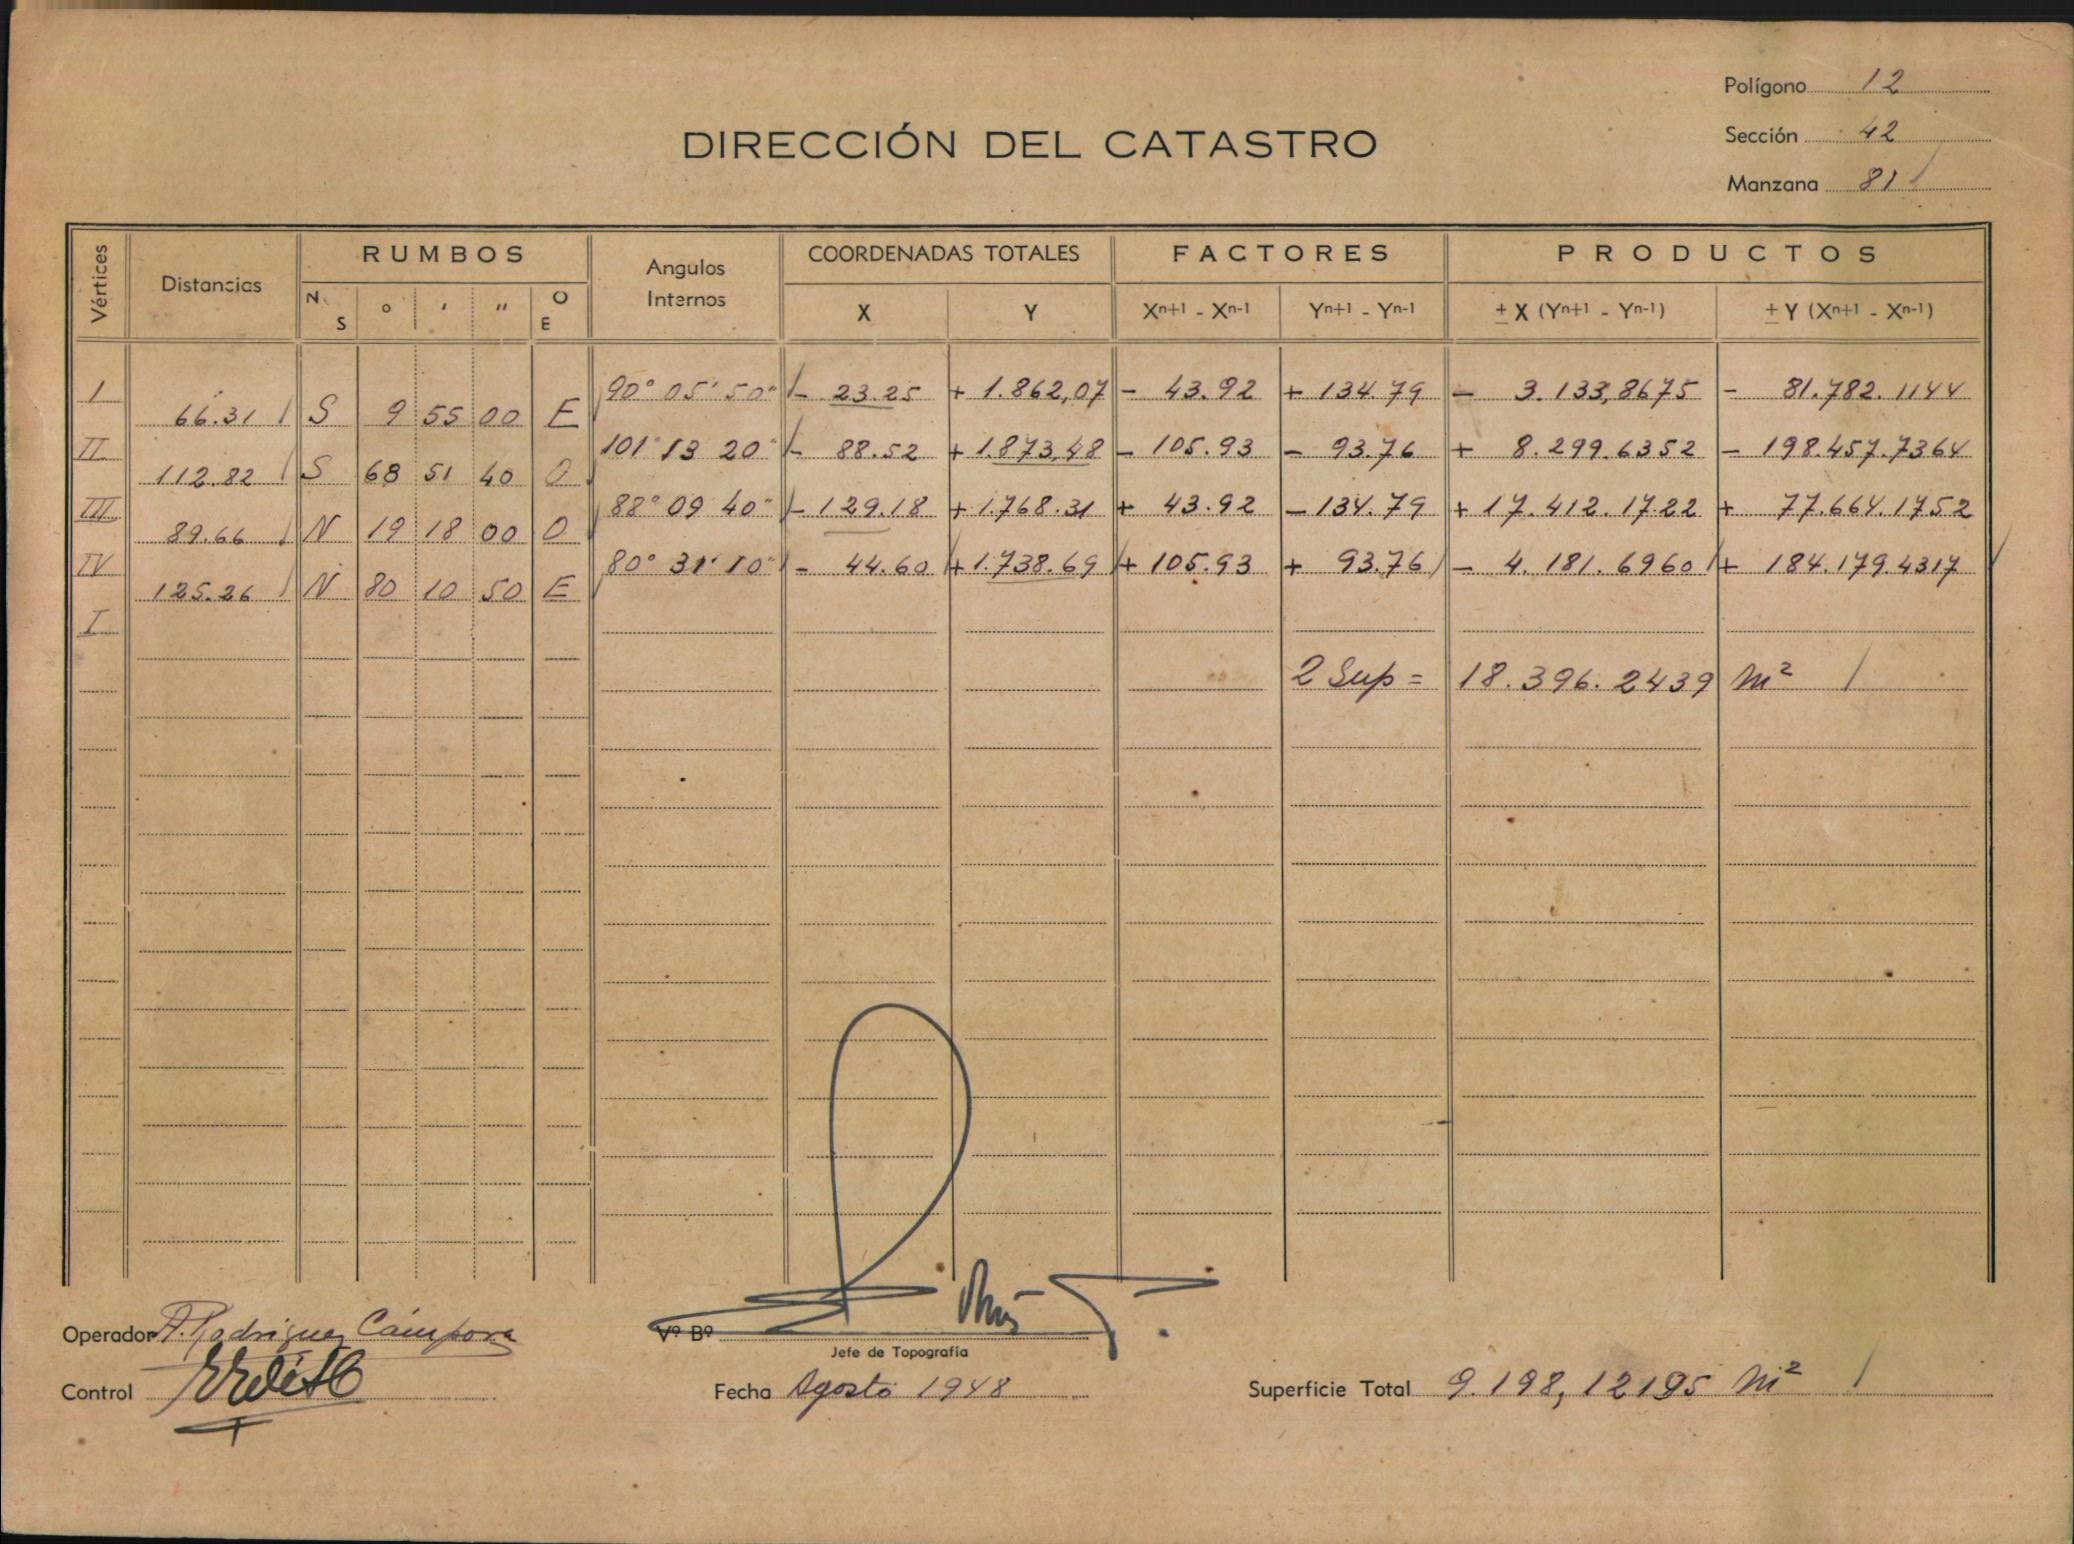 Polígono 12
DIRECCIÓN DEL CATASTRO
Sección 42
Manzana 81
Vértices Distancias RUMBOS Angulos Internos COORDENADAS TOTALES FACTORES PRODUCTOS
N. S o ' " O E X Y Xn+1 - Xn-1 Yn+1 - Yn-1 ± X (Yn+1 - Yn-1) ± Y (Xn+1 - Xn-1)
I 90° 05' 50" - 23.25 + 1.862,07 - 43.92 + 134.79 - 3.133,8675 - 81.782.1144
66.31 S 9 55 00 E
II 101° 13 20" - 88.52 + 1.873,48 - 105.93 - 93.76 + 8.299.6352 - 198.457.7364
112.82 S 68 51 40 O
III 88° 09 40" - 129.18 + 1.768.31 + 43.92 - 134.79 + 17.412.1722 + 77.664.1752
89.66 N 19 18 00 O
IV 80° 31' 10" - 44.60 + 1.738.69 + 105.93 + 93.76 - 4.181.6960 + 184.179.4317
125.26 N 80 10 50 E
I
2 Sup = 18.396.2439 m²
Operador A. Rodriguez Cámpora
Vº Bº
Jefe de Topografía
Control
Fecha Agosto 1948
Superficie Total 9.198,12195 m²